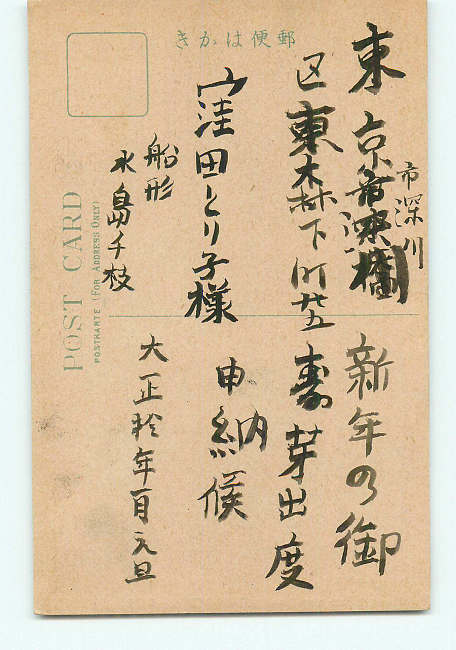 郵便はかき
東京市深川
区東森下町廿五
窪田とり子様
船形
水島千枝
新年の御
寿芽出度
申納候
大正拾年一月元旦
POST CARD
POSTKARTE (FOR ADDRESS ONLY)